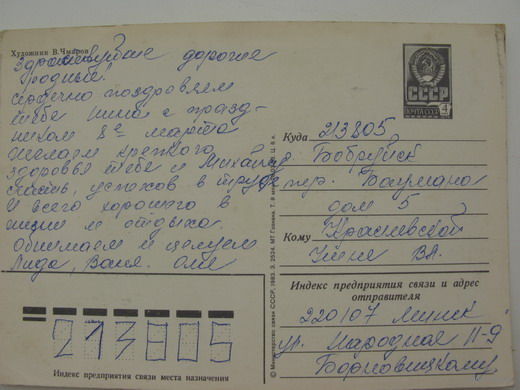 Художник В. Чмаров
Здравствуйте дорогие
родные!
Сердечно поздравляем
тебе Нина с празд-
ником 8е марта
желаем крепкого
здоровья тебе и Михаилу
счастья, успехов в труде
И всего хорошего в
жизни и отдыха.
Обнимаем и целуем
Лида, Ваня. Оля
ПОЧТА СССР
4
Куда 213805
г. Бобруйск
пер. Баумана
дом 5
Кому
Нине Вл.
Индекс предприятия связи и адрес
отправителя
220107 Минск
ул. Народная 11-9
213805
Индекс предприятия связи места назначения
© Министерство связи СССР, 1983. З. 3534. МТ Гознака.